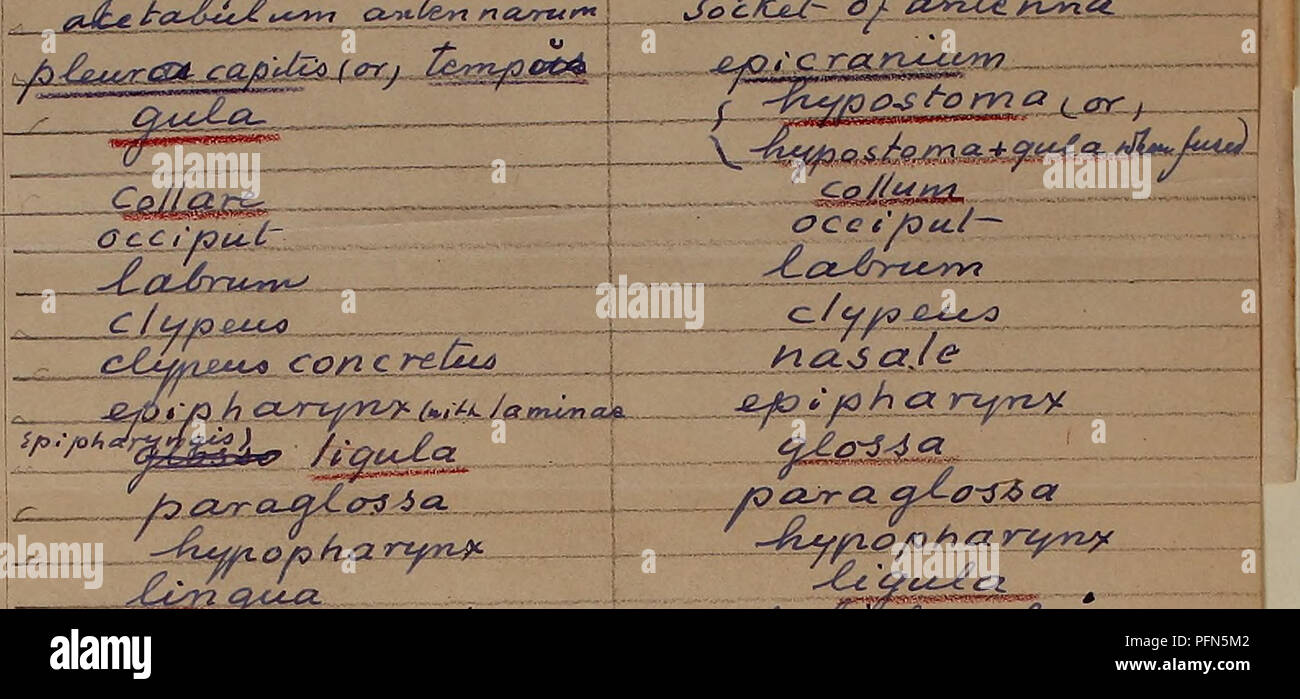 acetabulum antennarum socket of antenna
pleura capitis (or, tempora epicranium
gula { hypostoma (or,
hypostoma + gula when fused)
collare collum
occiput occiput
labrum labrum
clypeus clypeus
clypeus concretus nasale
epipharynx (with laminae epipharynx
epipharyngis) glossa ligula glossa
paraglossa paraglossa
hypopharynx hypopharynx
lingua ligula
alamy
Image ID: PFN5M2
www.alamy.com